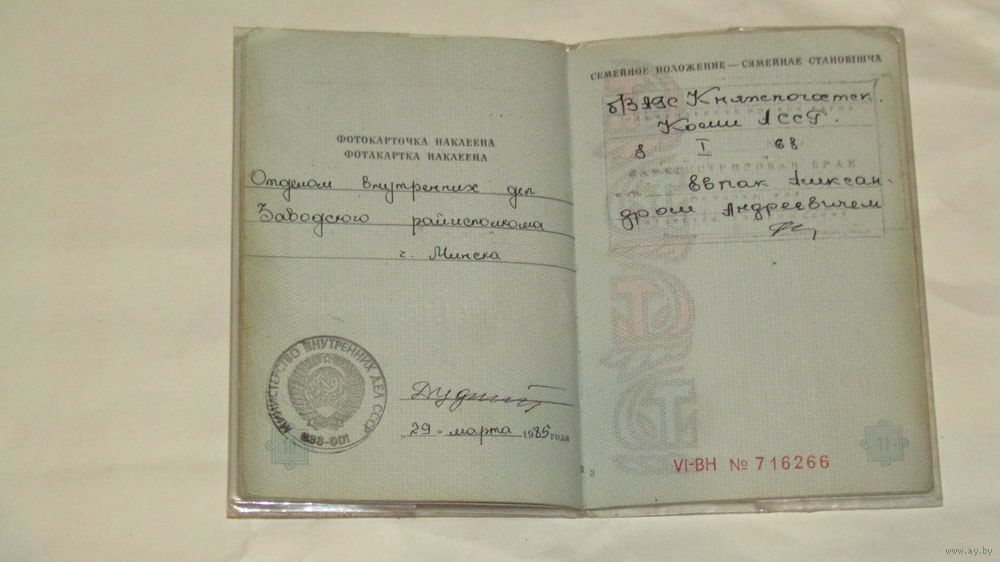 ФОТОКАРТОЧКА НАКЛЕЕНА
ФОТАКАРТКА НАКЛЕЕНА
Отделом внутренних дел
Заводского райисполкома
г. Минска
МИНИСТЕРСТВО ВНУТРЕННИХ ДЕЛ СССР
„29“ марта 1985 года
10
СЕМЕЙНОЕ ПОЛОЖЕНИЕ — СЯМЕЙНАЕ СТАНОВІШЧА
ЗАГС Княжпогостск.
Коми АССР.
8 I 68
ЗАРЕГИСТРИРОВАН БРАК
Евпак Алексан-
дром Андреевичем
VI-ВН № 716266
11
3
www.ay.by